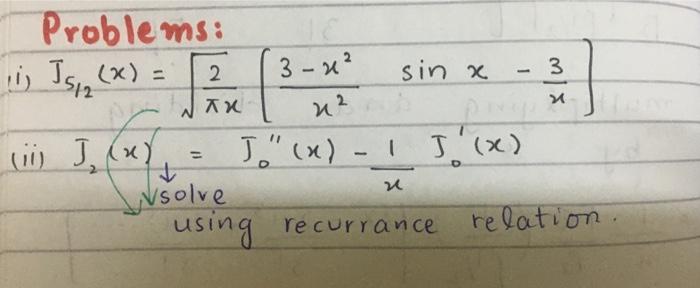 Problems:
(i) J_{5/2} (x) = √(2/(πx)) [ (3 - x²)/x² sin x - 3/x ]
(ii) J_2 (x) = J_0'' (x) - 1/x J_0' (x)
solve
using recurrance relation.